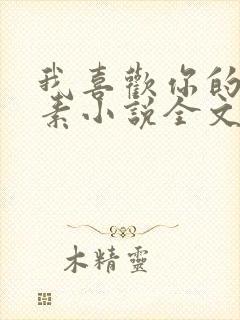 我喜歡你的
素小說全文
木精靈